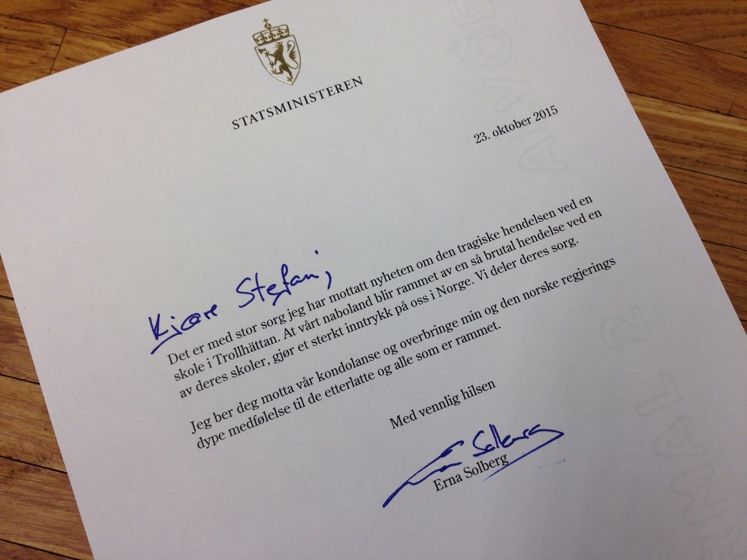 STATSMINISTEREN
23. oktober 2015
Kjære Stefan,
Det er med stor sorg jeg har mottatt nyheten om den tragiske hendelsen ved en
skole i Trollhättan. At vårt naboland blir rammet av en så brutal hendelse ved en
av deres skoler, gjør et sterkt inntrykk på oss i Norge. Vi deler deres sorg.
Jeg ber deg motta vår kondolanse og overbringe min og den norske regjerings
dype medfølelse til de etterlatte og alle som er rammet.
Med vennlig hilsen
Erna Solberg
Erna Solberg